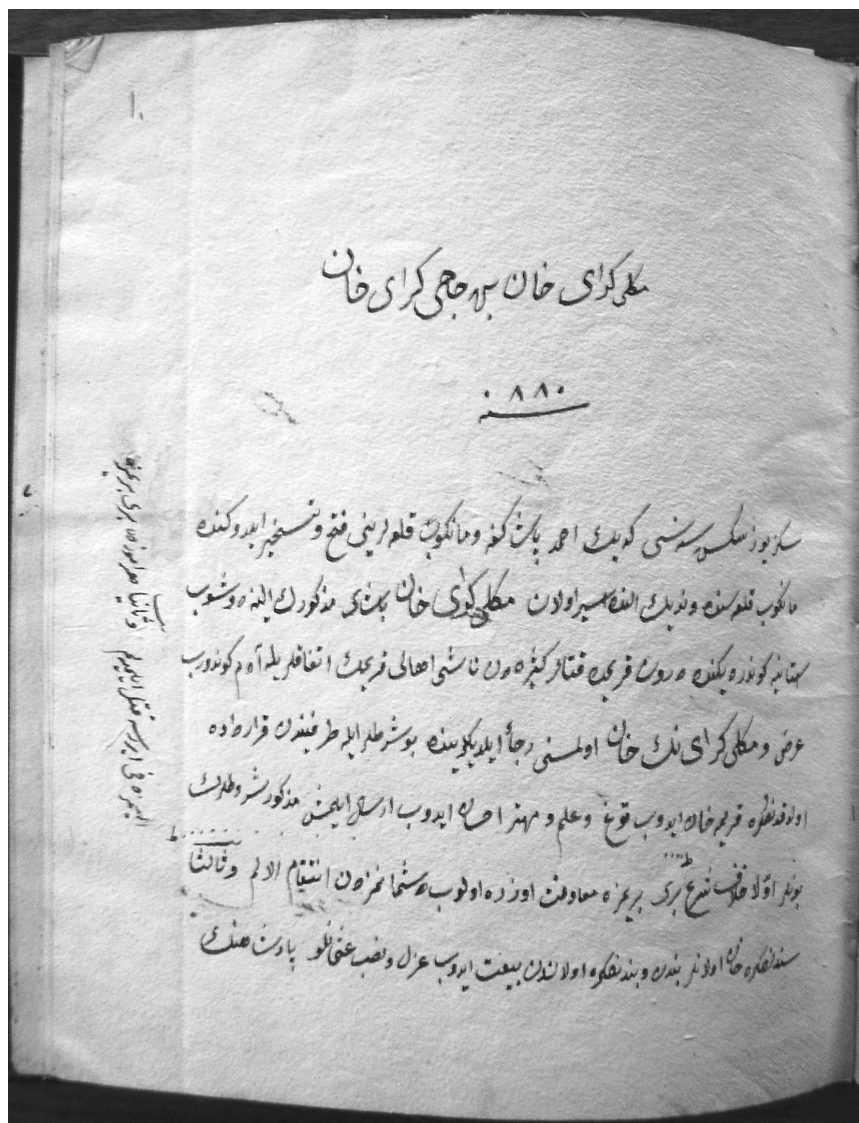 ١٠
منكلی كرای خان بن حاجی كرای خان
سنه ٨٨٠
سكز یوز سكسن سنه سی كدیك احمد پاشا كفه و مانكوب قلعه لرینی فتح و تسخیر ایلدوكنده
مانكوب قلعه سنده ونديك النده اسیر اولان منكلی كرای خان پاشای مذكورك الینه دوشوب
ستانبوله كوندردیكنده درون قریمده فتنه كثیره دن ناشی اهالی قریمك اتفاقلریله آدم كوندروب
عرض و منكلی كرای نك خان اولمسنی رجا ایلدیكلرینده بو شرطلر ایله طرفیندن قرارداده
اولدقدنصكره قریمه خان ایدوب قوغ و علم و مهتر احسان ایدوب ارسال ایلمش مذكور شروطلرك
بونلر اولا خلاف شرع بری بریمزه معاونت اوزره اولوب دشمانمزدن انتقام الالم وثالثا
سندنصكره خان اولانلر بندن و بندنصكره اولاندن بیعت ایدوب عزل و نصب عثمانلو پادشاهنك
وثانیا هر امرده بری بریمزه